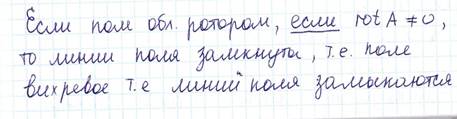 Если поле обл. ротором, если rot A ≠ 0,
то линии поля замкнуты, т.е. поле
вихревое т.е линий поля замыкаются